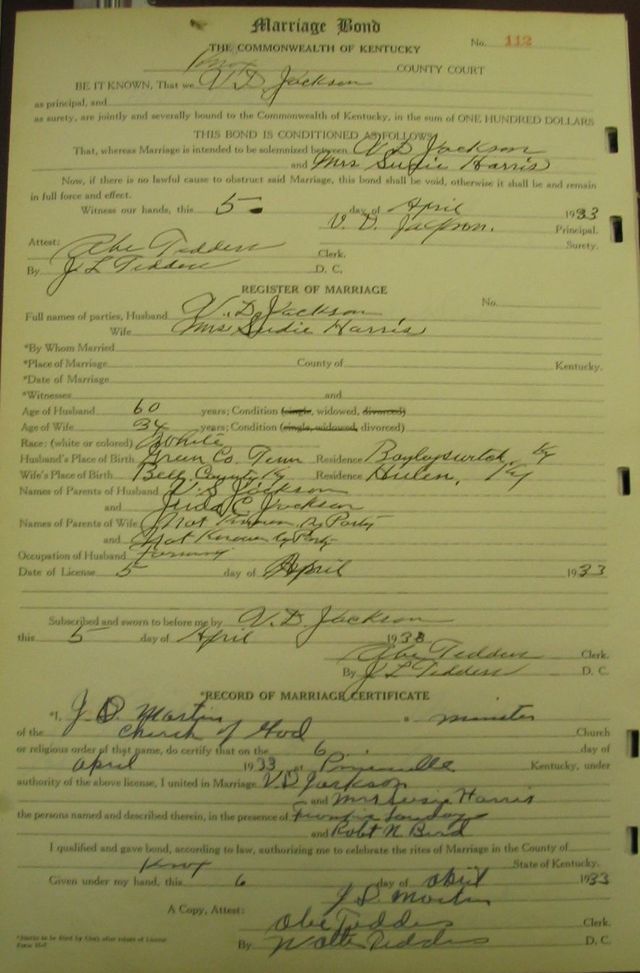 Marriage Bond
THE COMMONWEALTH OF KENTUCKY
No. 112
Knox COUNTY COURT
BE IT KNOWN, That we V. D. Jackson
as principal, and
as surety, are jointly and severally bound to the Commonwealth of Kentucky, in the sum of ONE HUNDRED DOLLARS
THIS BOND IS CONDITIONED AS FOLLOWS:
That, whereas Marriage is intended to be solemnized between V. D. Jackson
and Mrs Sudie Harris
Now, if there is no lawful cause to obstruct said Marriage, this bond shall be void, otherwise it shall be and remain
in full force and effect.
Witness our hands, this 5 day of April 1933
V. D. Jackson. Principal.
Surety.
Attest:
Abe Tedders Clerk.
By J L Tedders D. C.
REGISTER OF MARRIAGE
No.
Full names of parties, Husband V. D. Jackson
Wife Mrs Sudie Harris
*By Whom Married
*Place of Marriage County of Kentucky.
*Date of Marriage
*Witnesses and
Age of Husband 60 years; Condition (single, widowed, divorced)
Age of Wife 34 years; Condition (single, widowed, divorced)
Race: (white or colored) White
Husband's Place of Birth Green Co. Tenn Residence Ky
Wife's Place of Birth Bell County Ky Residence Hulen, Ky
Names of Parents of Husband Jackson
and C. Jackson
Names of Parents of Wife Not Known by Party
and Not Known by Party
Occupation of Husband Farming
Date of License 5 day of April 1933
Subscribed and sworn to before me by V. D. Jackson
this 5 day of April 1933
Abe Tedders Clerk.
By J L Tedders D. C.
*RECORD OF MARRIAGE CERTIFICATE
*I, J. D. Martin a minister
of the Church of God Church
or religious order of that name, do certify that on the 6 day of
April 1933 at Pineville Kentucky, under
authority of the above license, I united in Marriage V D Jackson
and Mrs Susie Harris
the persons named and described therein, in the presence of
and Robt N Bird
I qualified and gave bond, according to law, authorizing me to celebrate the rites of Marriage in the County of
Knox State of Kentucky.
Given under my hand, this 6 day of April 1933
J. D. Martin
A Copy, Attest:
Abe Tedders Clerk.
By Walter Tedders D. C.
*Blanks to be filled by Clerk after return of License